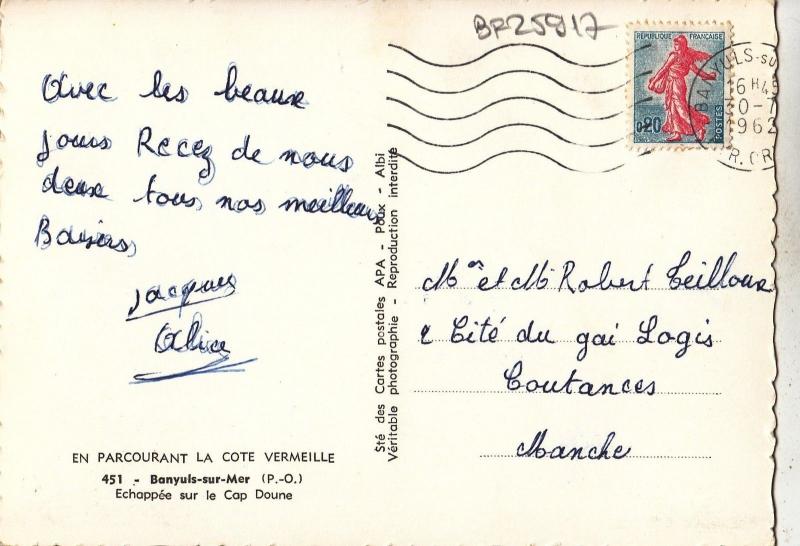 BR25917
RÉPUBLIQUE FRANÇAISE
0,20
POSTES
BANYULS-SU
16 H 45
0-7
1962
R.OR
Avec les beaux
jours Recez de nous
deux tous nos meilleurs
Baisers
Jacques
Alice
Sté des Cartes postales APA - Poux - Albi
Véritable photographie - Reproduction interdite
Mme et Mr Robert Teilloux
2 Cité du gai Logis
Coutances
Manche
EN PARCOURANT LA COTE VERMEILLE
451 - Banyuls-sur-Mer (P.-O.)
Echappée sur le Cap Doune